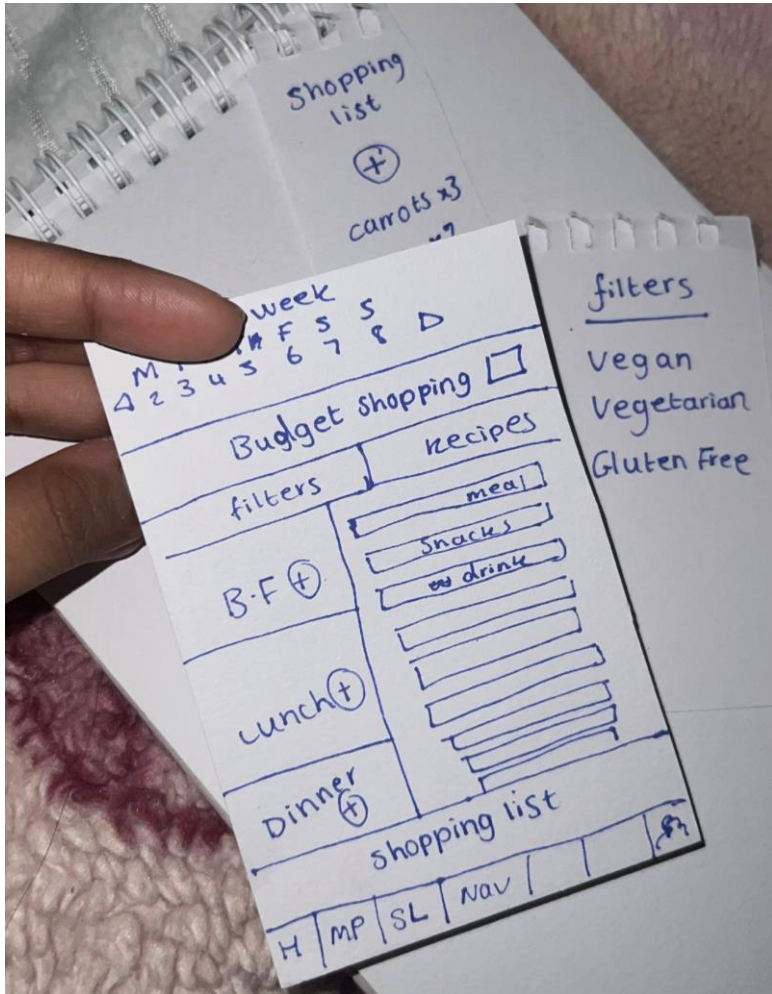 Shopping
list
+
carrots x3
week
M F S S
2 3 4 5 6 7 8
Budget Shopping
filters
Recipes
meal
Snacks
drink
B.F +
Lunch +
Dinner
+
Shopping list
H MP SL Nav
filters
Vegan
Vegetarian
Gluten Free